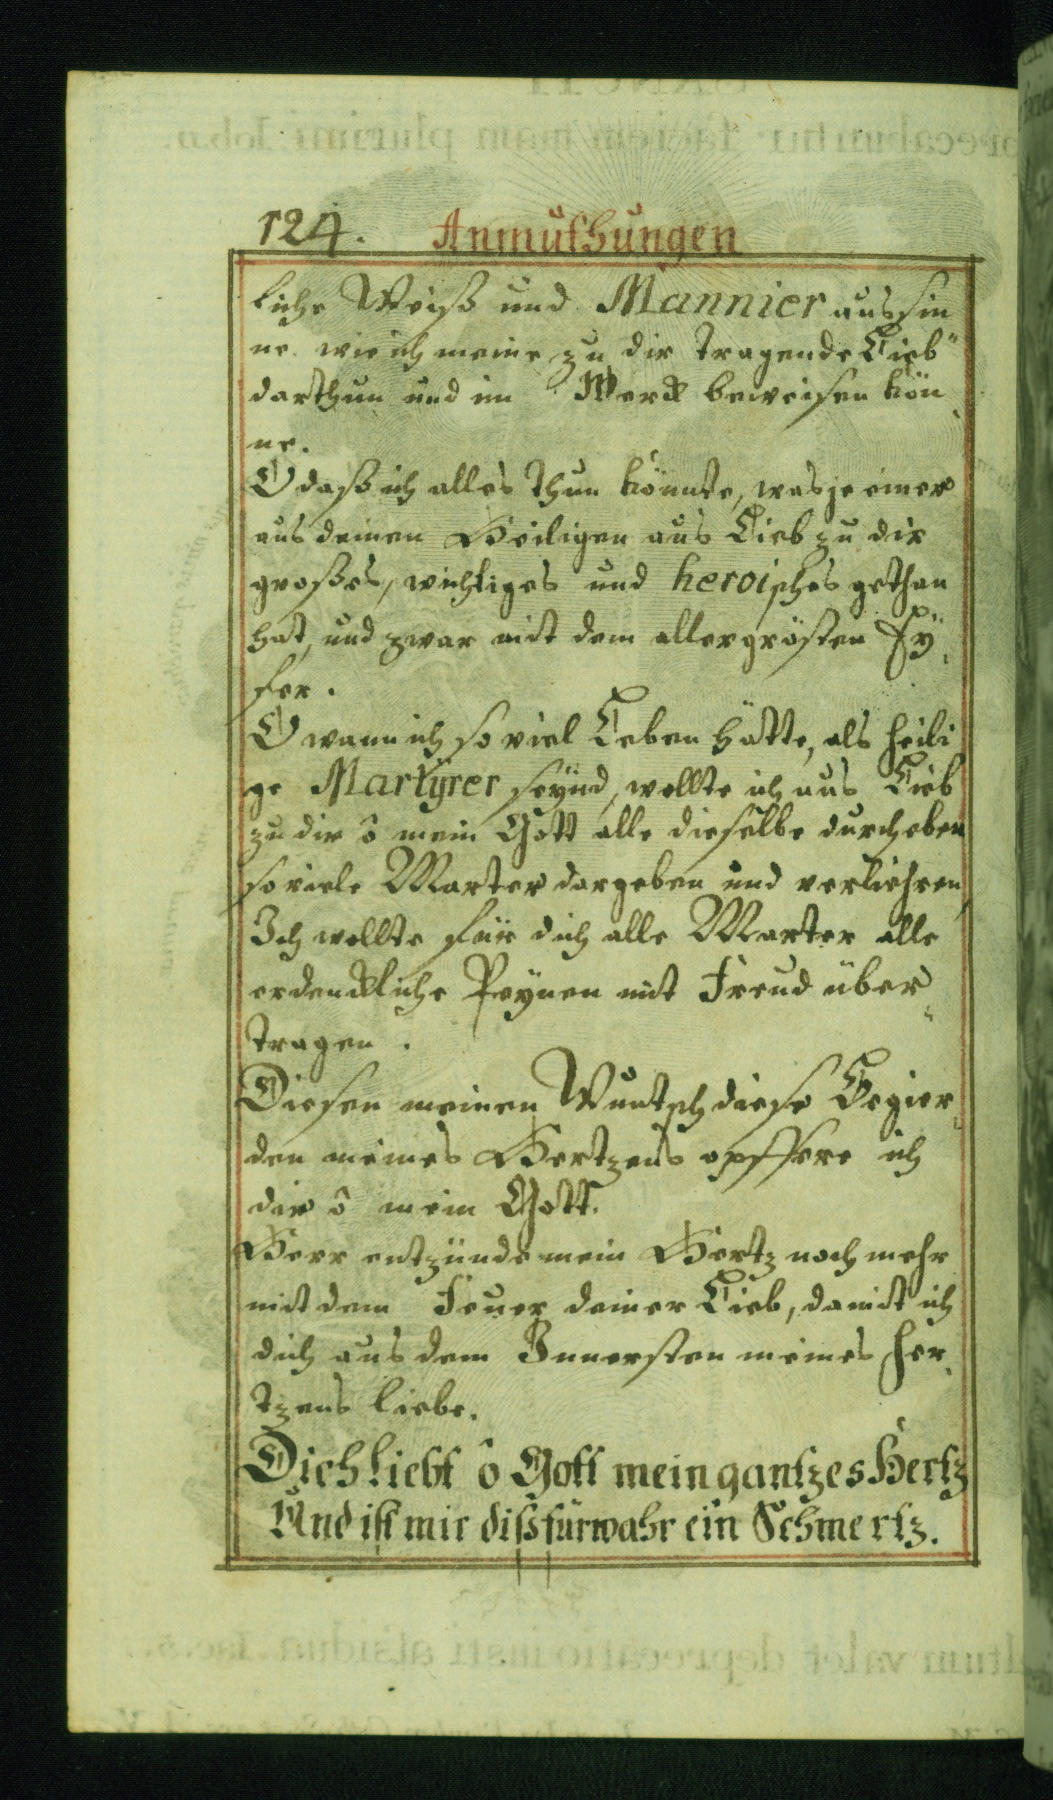 124. Anmuthungen
liche Weiß und Mannier aussin
ne wie ich meine zu dir tragende Lieb
darthun und im Werck beweisen kön
ne.
O daß ich alles thun könnte, was je einer
aus deinen Heiligen aus Lieb zu dir
großes, wichtiges und heroisches gethan
hat, und zwar mit dem allergrösten Ey
fer.
O wann ich so viel Leben hätte, als heili
ge Martÿrer seynd, wollte ich aus Lieb
zu dir ô mein Gott alle dieselbe durch eben
so viele Marter dargeben und verliehren
Ich wollte für dich alle Marter alle
erdenckliche Peynen mit Freud über
tragen.
Diesen meinen Wuntsch diese Begier
den meines Hertzens opffere ich
dir ô mein Gott.
Herr entzünde mein Hertz noch mehr
mit dem Feuer deiner Lieb, damit ich
dich aus dem Innersten meines Her
tzens liebe.
Dich liebt ô Gott mein gantzes Hertz
Und ist mir diß fürwahr ein Schmertz.